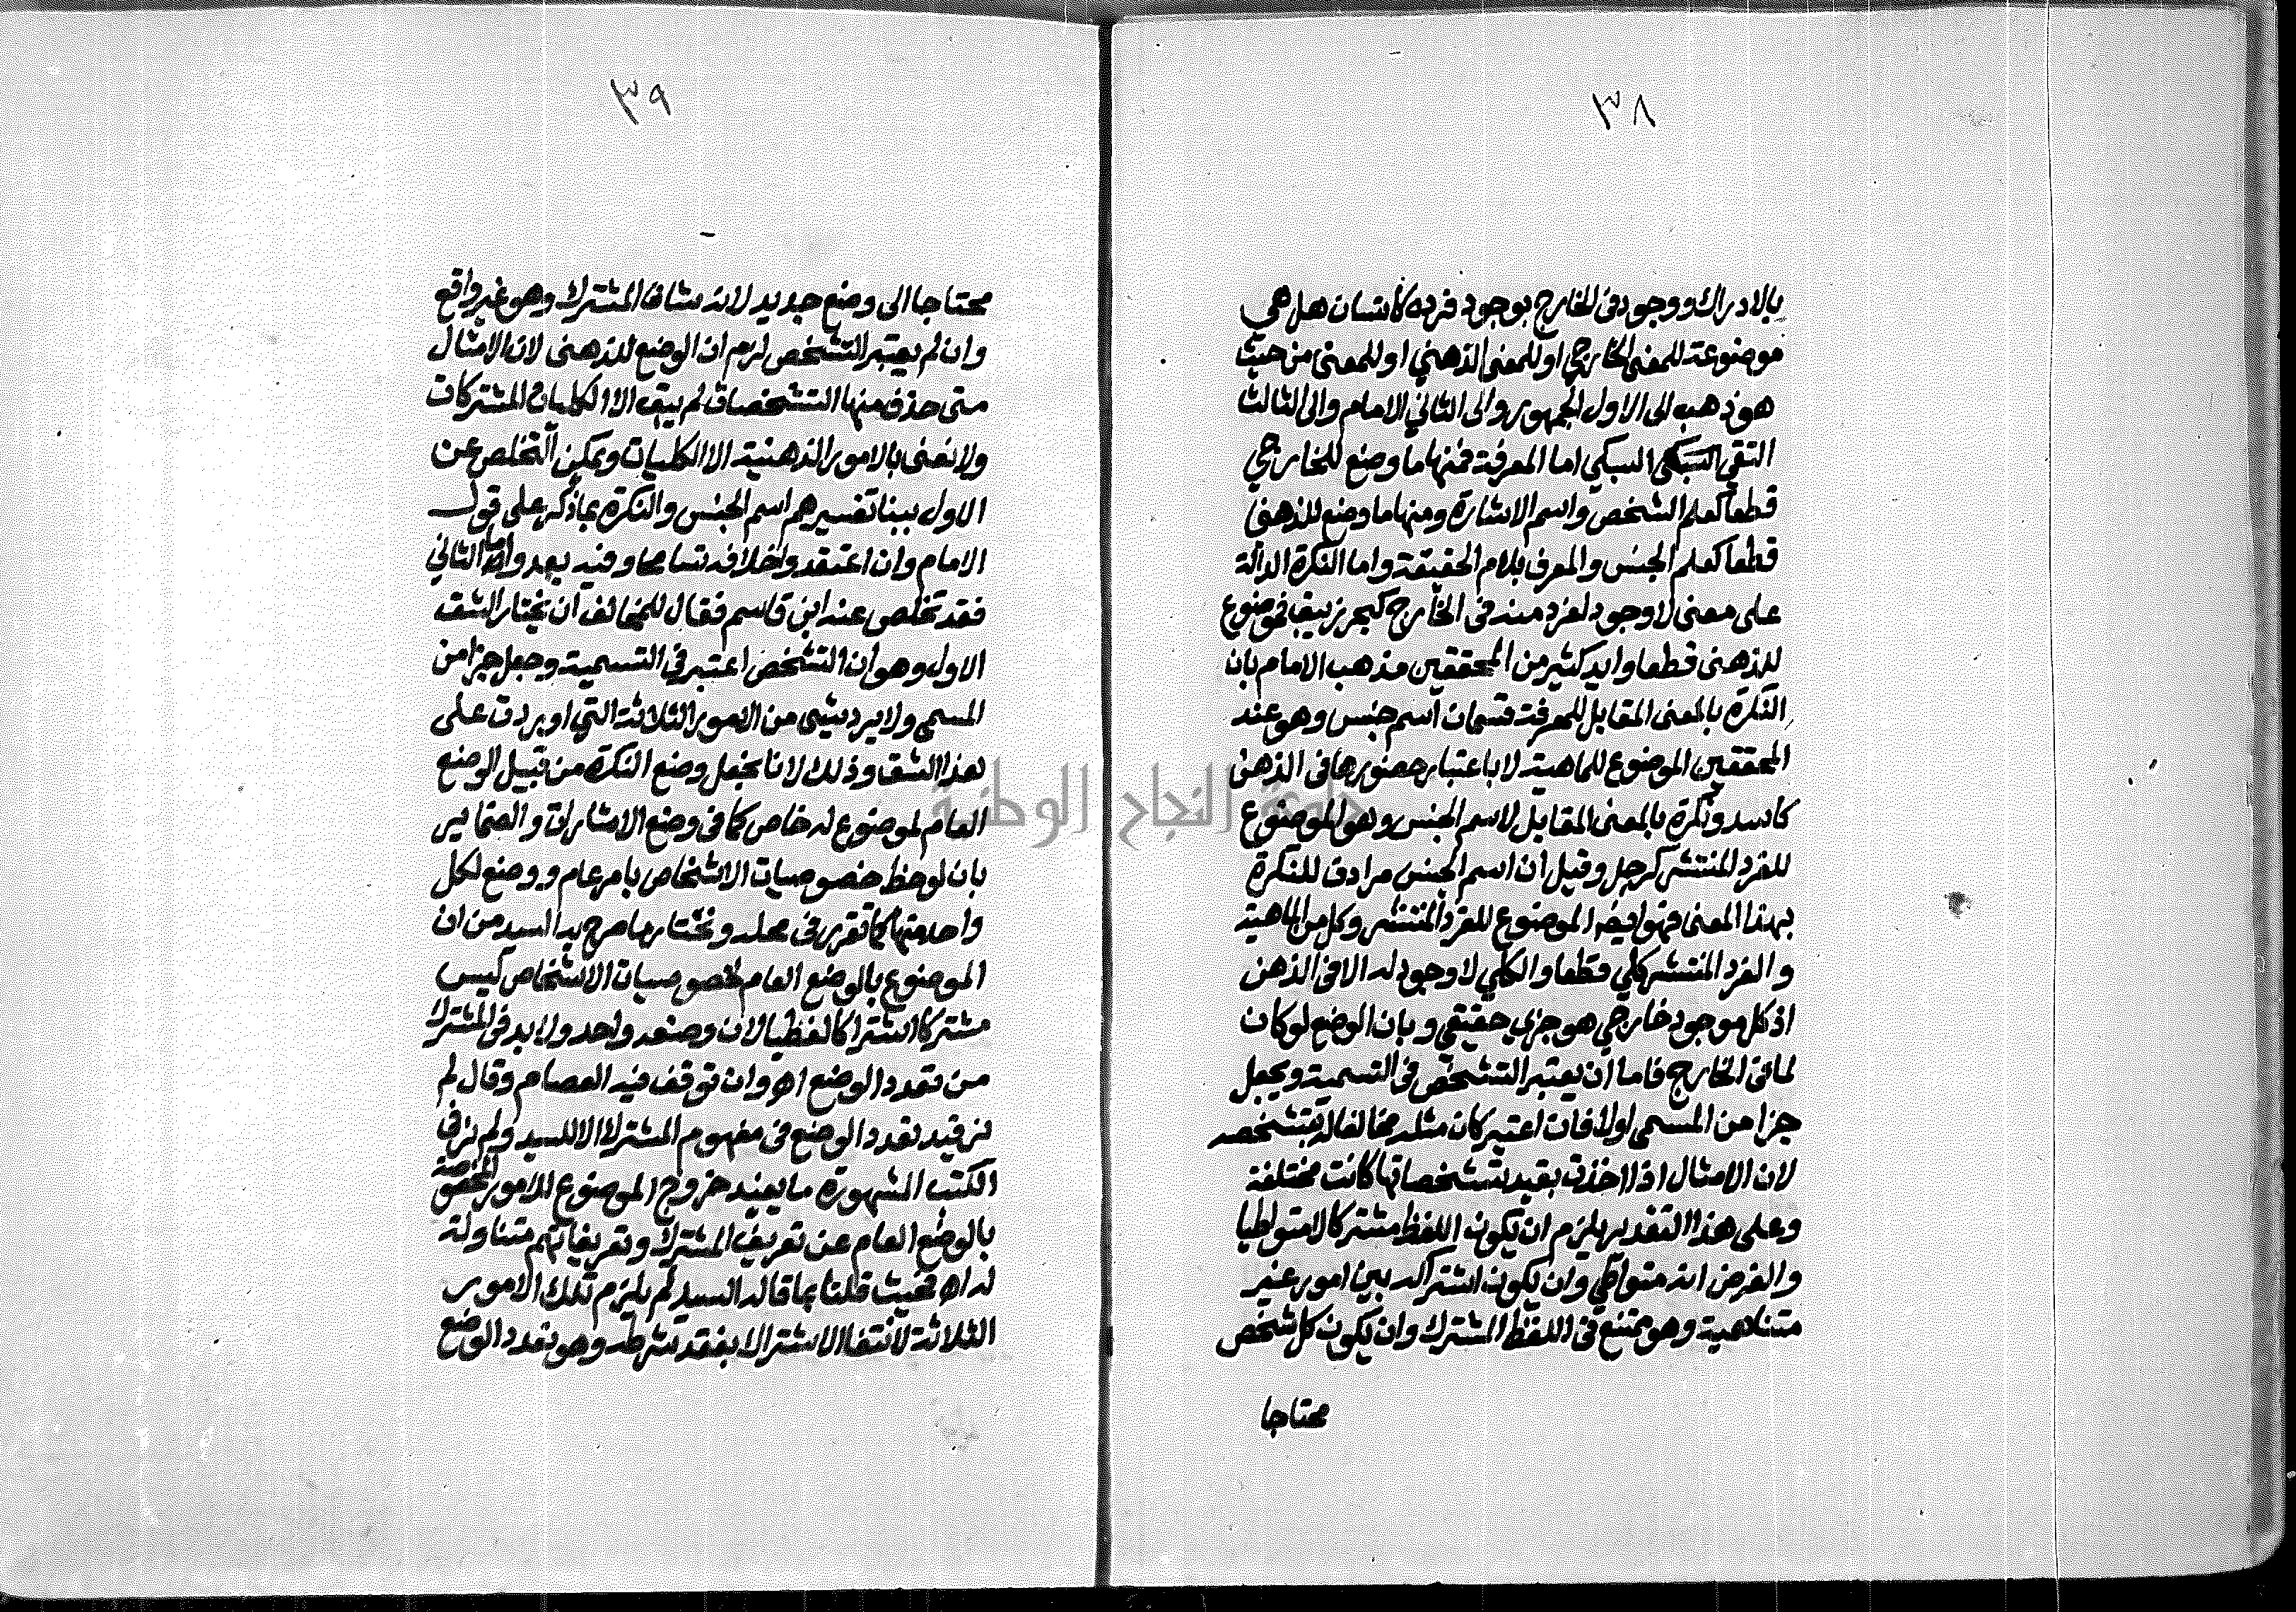 ٣٨
بالادراك ووجود في الخارج بوجود فرده كانسان هل هي
موضوعة للمعنى الخارجي او للمعنى الذهني او للمعنى من حيث
هو ذهب الى الاول الجمهور والى الثاني الامام والى الثالث
التقي السبكي السبكي اما المعرفة فمنها ما وضع للخارجي
قطعا كعلم الشخص واسم الاشارة ومنها ما وضع للذهني
قطعا كعلم الجنس والمعرف بلام الحقيقة واما النكرة الدالة
على معنى لا وجود لفرد منه في الخارج كبحر زيبق فموضوع
للذهني قطعا وايد كثير من المحققين مذهب الامام بان
النكرة بالمعنى المقابل للمعرفة قسمان اسم جنس وهو عند
المحققين الموضوع للماهية لا باعتبار حضورها في الذهن
كاسد ونكرة بالمعنى المقابل لاسم الجنس وهو الموضوع
للفرد المنتشر كرجل وقيل ان اسم الجنس مرادف للنكرة
بهذا المعنى فهو ايضا الموضوع للفرد المنتشر وكل من الماهية
والفرد المنتشر كلي قطعا والكلي لا وجود له الا في الذهن
اذ كل موجود خارجي هو جزي حقيقي وبان الوضع لو كان
لما في الخارج فاما ان يعتبر التشخص في التسمية ويجعل
جزا من المسمى اولا فان اعتبر كان مثله مخالفا له بتشخصه
لان الامثال اذا اخذت بقيد تشخصاتها كانت مختلفة
وعلى هذا التقدير يلزم ان يكون اللفظ مشتركا لا متواطيا
والفرض انه متواطي وان يكون اشتراكه بين امور غير
متناهية وهو ممتنع في اللفظ المشترك وان يكون كل شخص
محتاجا
٣٩
محتاجا الى وضع جديد لانه شان المشترك وهو غير واقع
وان لم يعتبر التشخص لزم ان الوضع للذهني لان الامثال
متى حذف منها التشخصات لم يبق الا الكليات المشتركات
ولا نعني بالامور الذهنية الا الكليات ويمكن التخلص عن
الاول ببنا تفسيرهم اسم الجنس والنكرة بما ذكر على قول
الامام وان اعتقدوا خلافه تسامحا وفيه بعد واما الثاني
فقد تخلص عنه ابن قاسم فقال للمخالف ان يختار الشق
الاول وهو ان التشخص اعتبر في التسمية وجعل جزا من
المسمى ولا يرد شي من الامور الثلاثة التي اوردت على
هذا الشق وذلك لانا نجعل وضع النكرة من قبيل الوضع
العام لموضوع له خاص كما في وضع الاشارات والضماير
بان لوحظ خصوصيات الاشخاص بامر عام ووضع لكل
واحد منها كما تقرر في محله ونختار ما صرح به السيد من ان
الموضوع بالوضع العام لخصوصيات الاشخاص ليس
مشتركا اشتراكا لفظيا لان وضعه واحد ولا بد في المشترك
من تعدد الوضع اه وان توقف فيه العصام وقال لم
نر قيد تعدد الوضع في مفهوم المشترك الا للسيد ولم نر في
الكتب المشهورة ما يفيد خروج الموضوع للامور المخصوصة
بالوضع العام عن تعريف المشترك وتعريفاتهم متناولة
له اه فحيث قلنا بما قاله السيد لم يلزم تلك الامور
الثلاثة لانتفا الاشتراك بفقد شرطه وهو تعدد الوضع
جامعة النجاح الوطنية